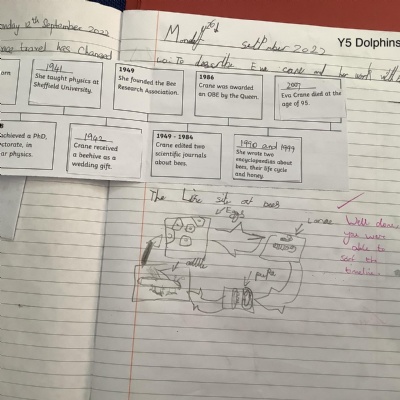 onday 12th September 2022
Monday 26th settember 2022
Y5 Dolphins
travel has changed
describe Eva crane and her work with
1941
She taught physics at
Sheffield University.
1949
She founded the Bee
Research Association.
1986
Crane was awarded
an OBE by the Queen.
2007
Eva Crane died at the
age of 95.
achieved a PhD,
ectorate, in
ar physics.
1942
Crane received
a beehive as a
wedding gift.
1949 - 1984
Crane edited two
scientific journals
about bees.
1990 and 1999
She wrote two
encyclopedias about
bees, their life cycle
and honey.
The Life of bees
Eggs
Larvae
pupa
Well done,
you were
able to
sort the
timeline.